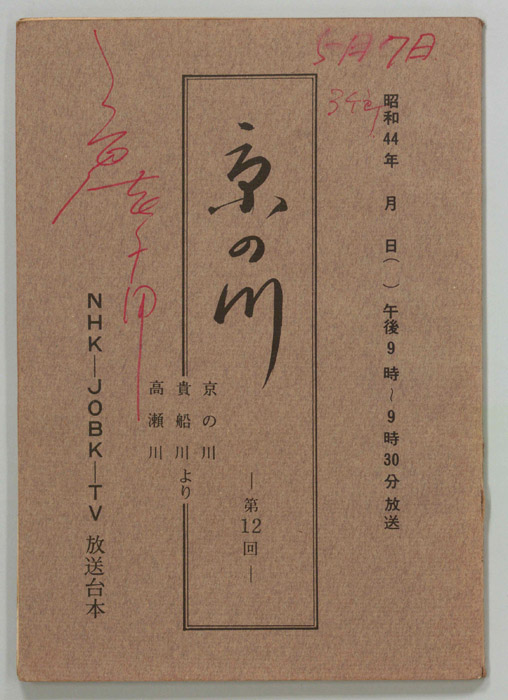 5月7日
昭和44年　月　日（　）午後9時～9時30分放送
京の川
―第12回―
京の川
貴船川より
高瀬川
NHK―JOBK―TV 放送台本